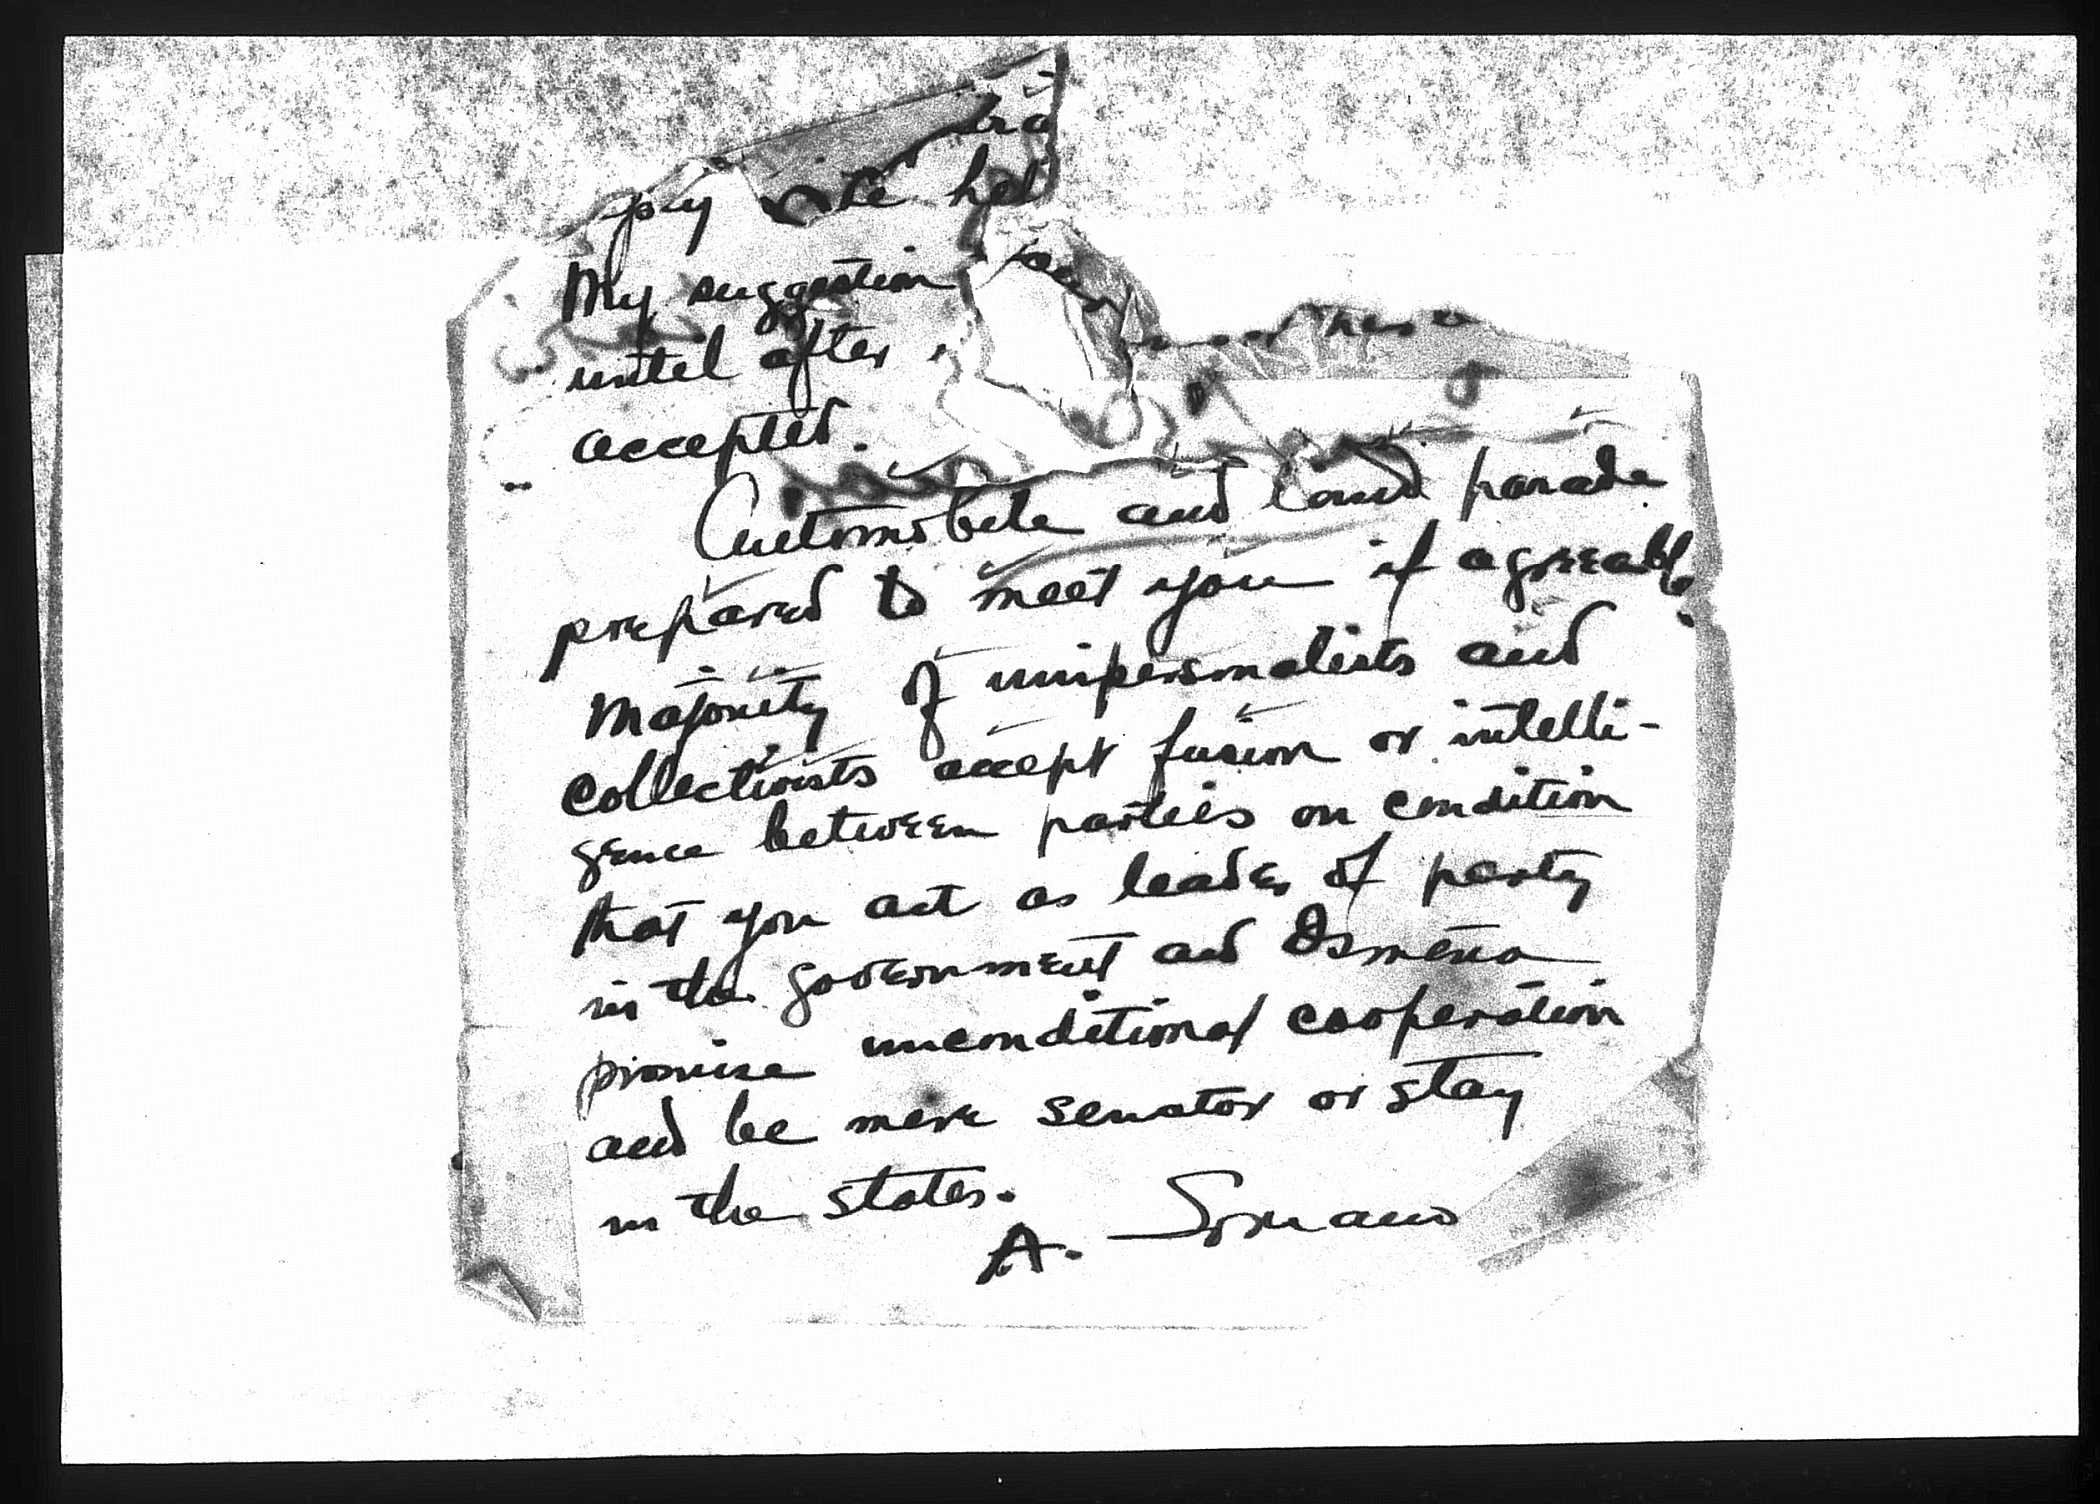 the hel
My suggestion
until after
accepted.
Automobile and land parade
prepared to meet you if agreeable.
Majority of unipersonalists and
collectivists accept fusion or intelli-
gence between parties on condition
that you act as leader of party
in the government and Osmeña
promise unconditional cooperation
and be mere senator or stay
in the states.
A. Soriano